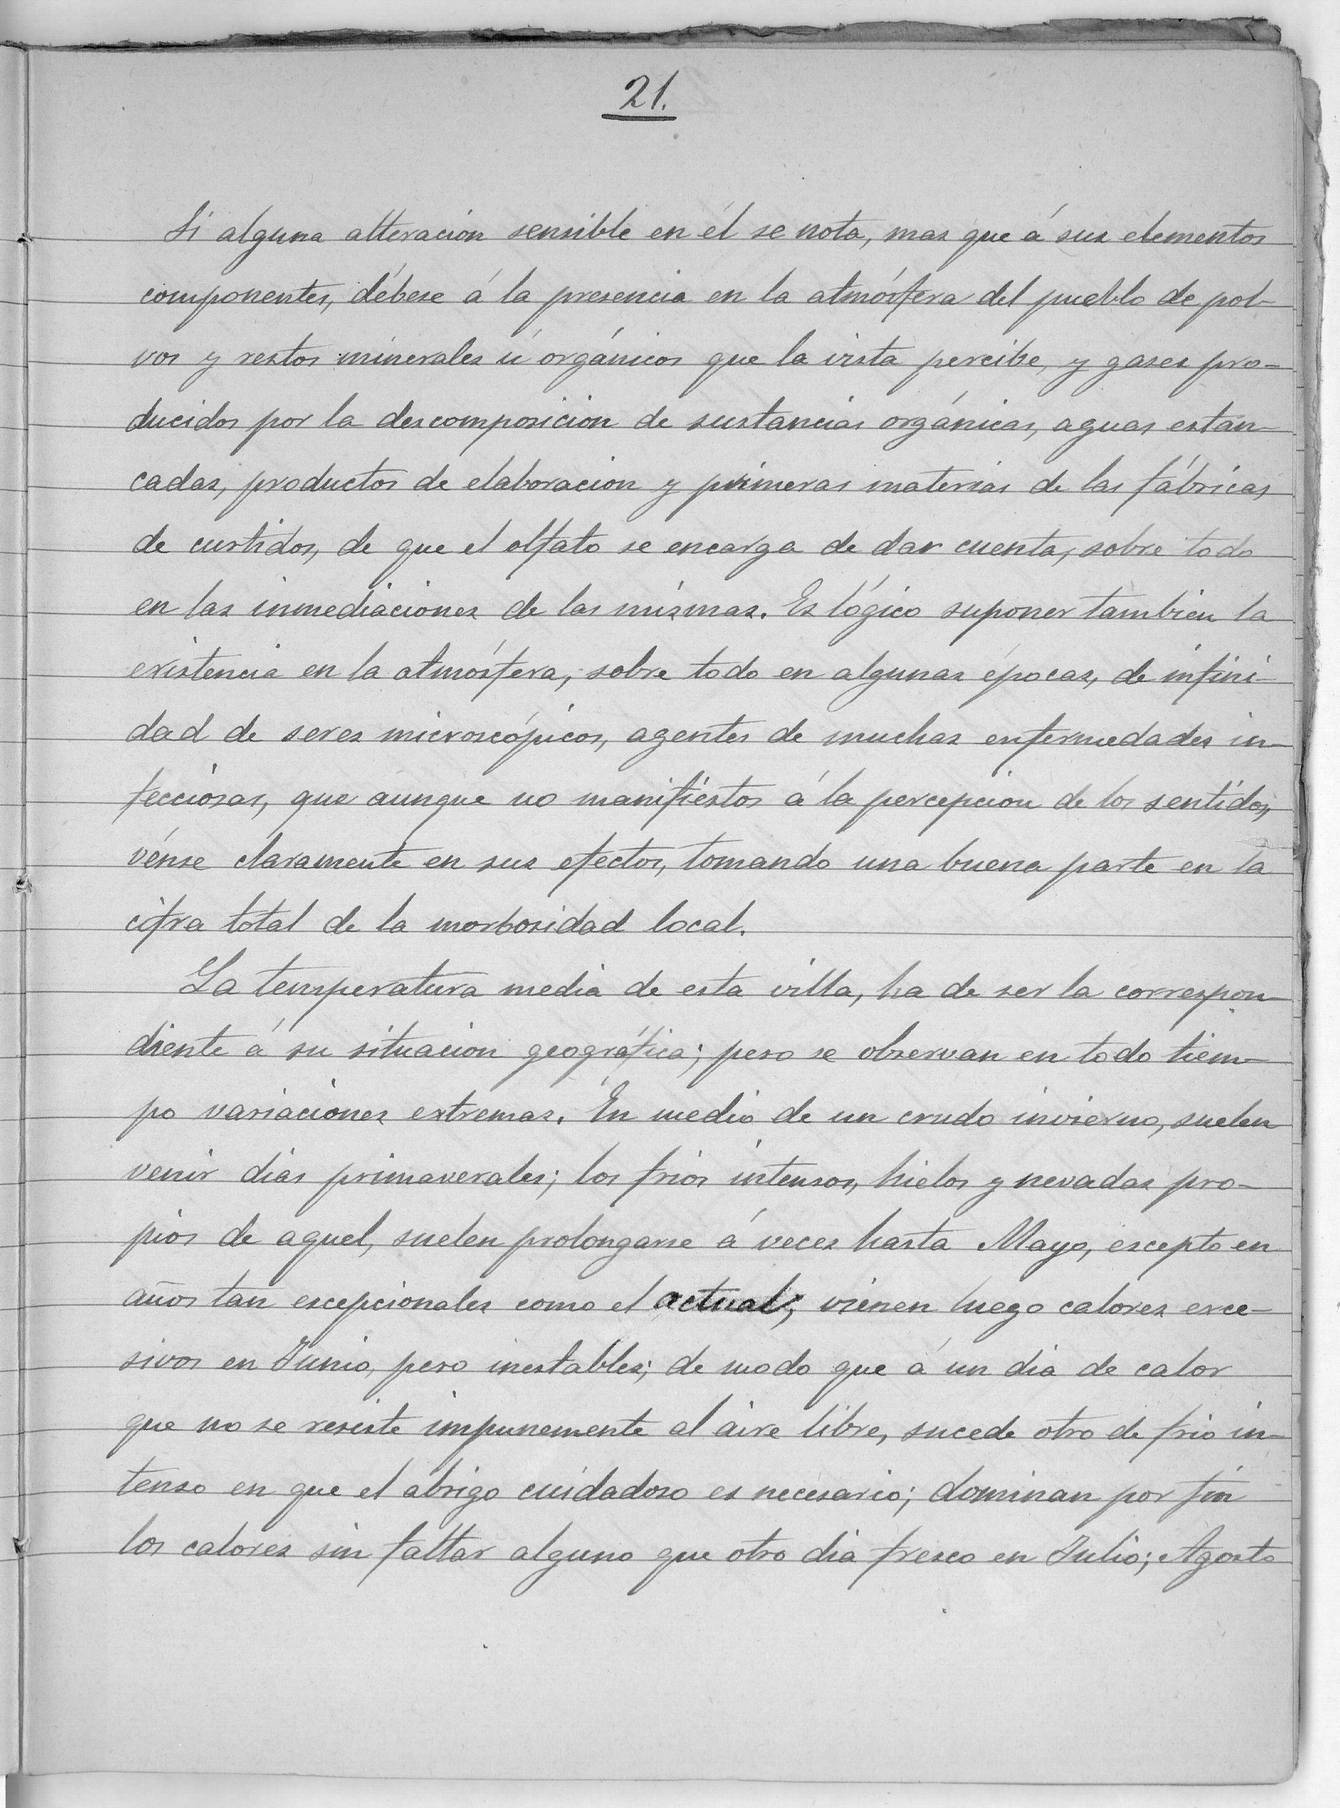 21.
Si alguna alteracion sensible en él se nota, mas que á sus elementos
componentes, débese á la presencia en la atmósfera del pueblo de pol-
vos y restos minerales ú orgánicos que la vista percibe, y gases pro-
ducidos por la descomposicion de sustancias orgánicas, aguas estan-
cadas, productos de elaboracion y primeras materias de las fábricas
de curtidos, de que el olfato se encarga de dar cuenta, sobre todo
en las inmediaciones de las mismas. Es lógico suponer tambien la
existencia en la atmósfera, sobre todo en algunas épocas, de infini-
dad de seres microscópicos, agentes de muchas enfermedades in-
fecciosas, que aunque no manifiestos á la percepcion de los sentidos,
vénse claramente en sus efectos, tomando una buena parte en la
cifra total de la morbosidad local.
La temperatura media de esta villa, ha de ser la correspon-
diente á su situacion geográfica; pero se observan en todo tiem-
po variaciones extremas. En medio de un crudo invierno, suelen
venir dias primaverales; los frios intensos, hielos y nevadas pro-
pios de aquel, suelen prolongarse á veces hasta Mayo, escepto en
años tan escepcionales como el actual; vienen luego calores exce-
sivos en Junio, pero inestables; de modo que á un dia de calor
que no se resiste impunemente al aire libre, sucede otro de frio in-
tenso en que el abrigo cuidadoso es necesario; dominan por fin
los calores sin faltar alguno que otro dia fresco en Julio; Agosto